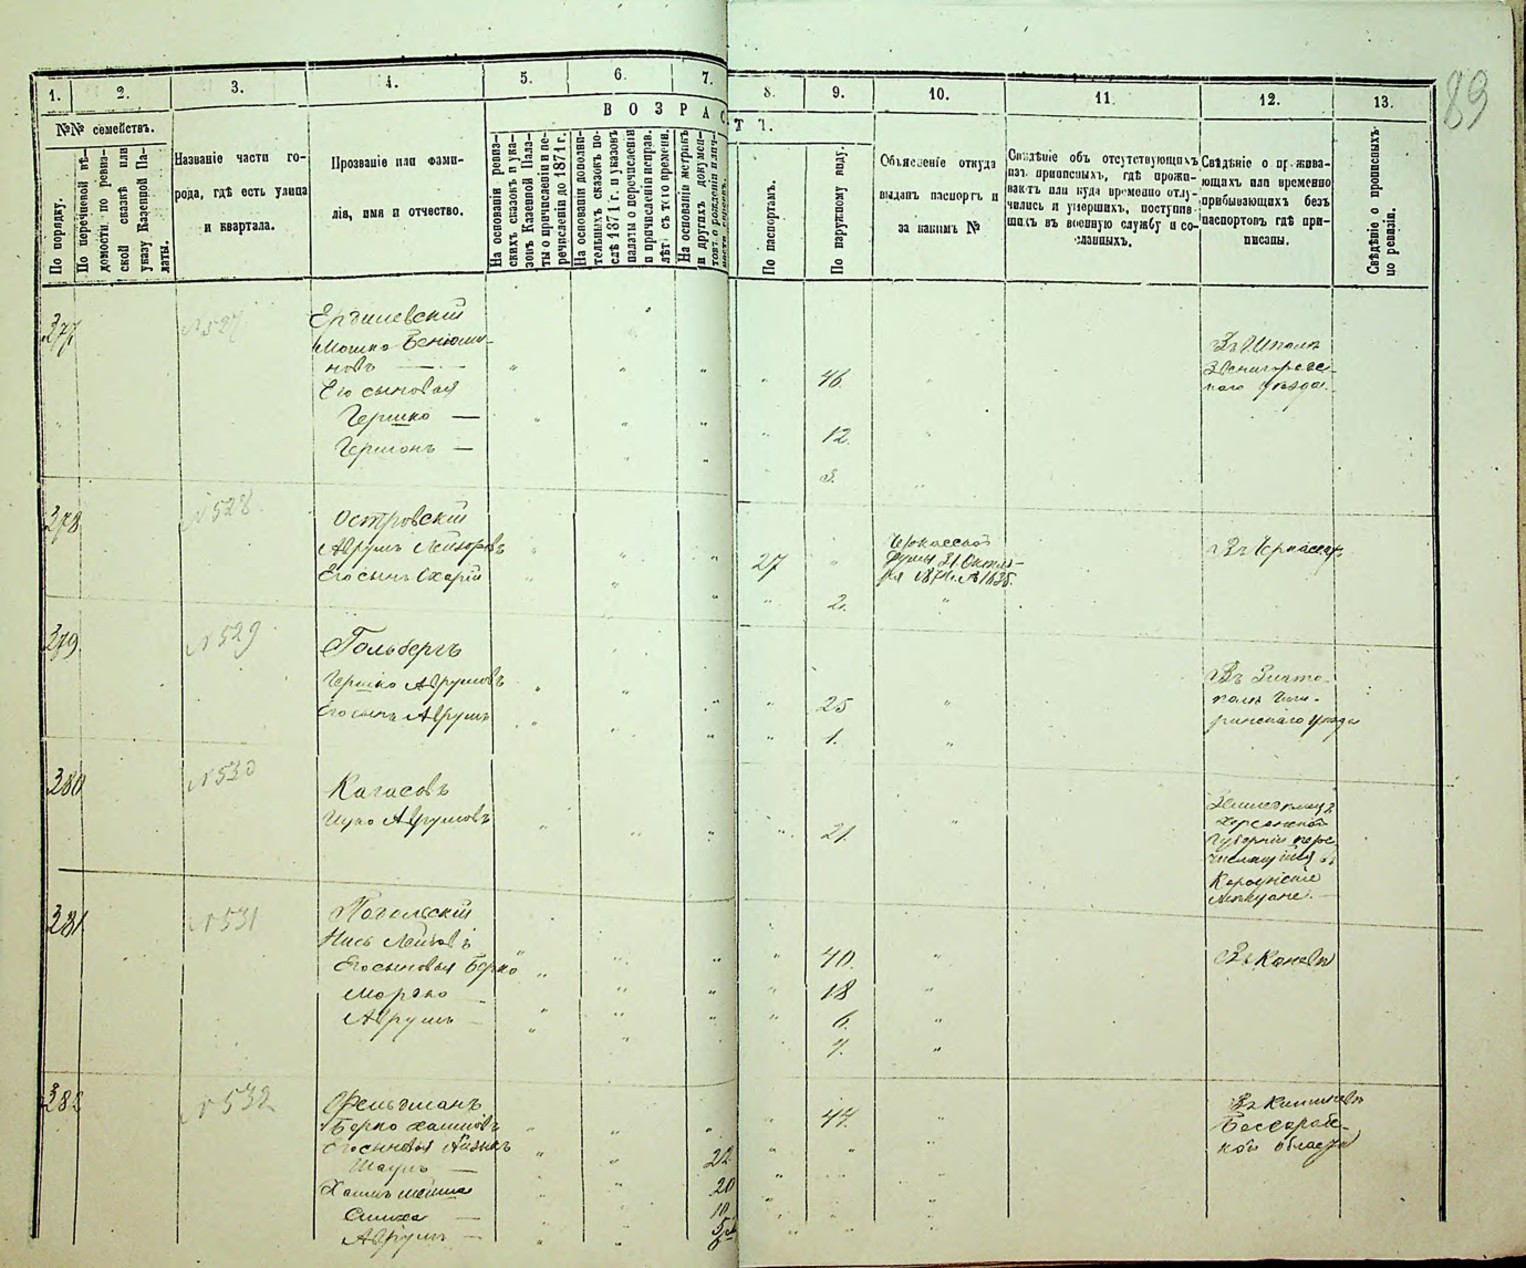 89
1. 2. 3. 4. 5. 6. 7. 8. 9. 10. 11. 12. 13.
№№ семействъ.
По порядку.
По перечневой вѣ-
домости по ревиз-
ской сказкѣ или
указу Казенной Па-
латы.
Названіе части го-
рода, гдѣ есть улица
и квартала.
Прозваніе или фами-
лія, имя и отчество.
ВОЗРАСТЪ.
На основаніи ревиз-
скихъ сказокъ и ука-
зовъ Казенной Пала-
ты о причисленіи и пе-
речисленіи до 1871 г.
На основаніи дополни-
тельныхъ сказокъ по-
слѣ 1871 г. и указовъ
палаты о перечисленіи
и причисленіи исправ.
лѣт. съ того времени.
На основаніи метрикъ
и другихъ докумен-
товъ о рожденіи
По паспортамъ.
По наружному виду.
Объясненіе откуда
выданъ паспортъ и
за какимъ №
Свѣдѣніе объ отсутствующихъ
изъ приписныхъ, гдѣ прожи-
ваютъ или куда временно отлу-
чились и умершихъ, поступив-
шихъ въ военную службу и со-
сланныхъ.
Свѣдѣніе о прожива-
ющихъ или временно
прибывающихъ безъ
паспортовъ гдѣ при-
писаны.
Свѣдѣніе о прописныхъ
по ревизіи.
277 №527 Ердишевскій
Мошко Беніоми-
новъ 46
Въ Шполѣ
Звенигородс-
каго уѣзда.
Его сыновья
Гершко — 12
Гершонъ — 3.
278 №528 Островскій
Аврумъ Лейзоровъ 27
Черкасской
Думы 31 Октяб-
ря 1874 г. №1635.
Въ Черкассахъ
Его сынъ Охарій 2.
279 №529 Гольбергъ
Гершко Аврумовъ 25
Въ Златополѣ Чиги-
ринскаго уѣзда
Его сынъ Аврумъ 1.
280 №530 Кагасовъ
Ицко Аврумовъ 21.
Херсонской
Губерніи
281 №531
Нись Лейбовъ 40.
Въ Каневѣ
Его сыновья Берко 18
Мордко — 6.
Аврумъ — 7.
282 №532 Фельдманъ
Берко Хаимовъ 44.
Въ Кишиневѣ
Бессараб-
кой области
Его сыновья Айзикъ 22
Шаулъ — 20
Хаимъ Мойше 10
Симха — 5
Аврумъ —